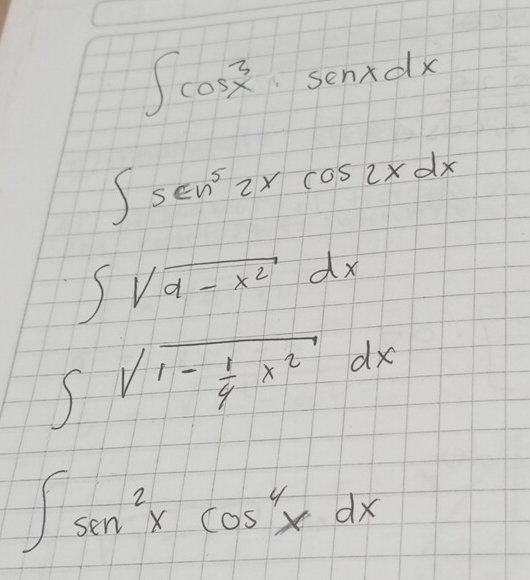 ∫ cos³x · senx dx
∫ sen⁵ 2x cos 2x dx
∫ √(a - x²) dx
∫ √(1 - 1/4 x²) dx
∫ sen²x cos⁴x dx